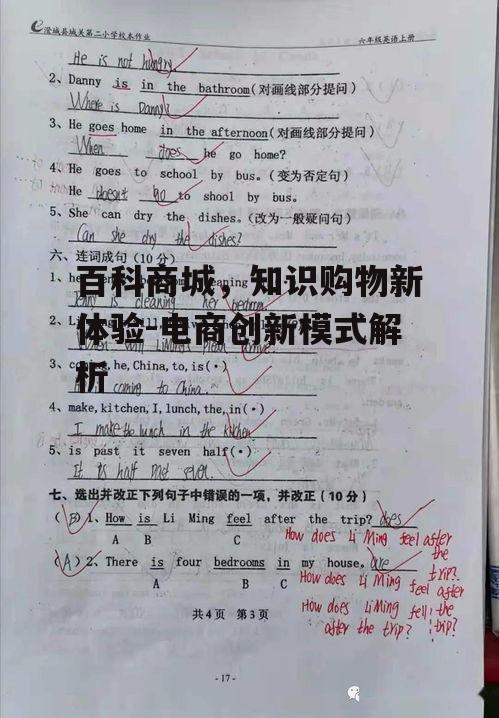 澄城县城关第二小学校本作业 六年级英语上册
He is not hungry
2、Danny is in the bathroom(对画线部分提问)
Where is Danny?
3、He goes home in the afternoon(对画线部分提问)
When does he go home?
4、He goes to school by bus。(变为否定句)
He doesn't go to shool by bus.
5、She can dry the dishes。(改为一般疑问句)
Can she dry the dishes?
六、连词成句(10分)
百科商城，知识购物新
体验-电商创新模式解
析
Jenny is cleaning her bedroom
he,China,to,is(·)
coming to China.
4、make,kitchen,I,lunch,the,in(·)
I make the lunch in the kitchen
5、is past it seven half(·)
It is half past seven.
七、选出并改正下列句子中错误的一项，并改正(10分)
(B)1、How is Li Ming feel after the trip? does
A B C
How does Li Ming feel after the trip?
(A)2、There is four bedrooms in my house。are
A B C
How does Li Ming feel after the trip?
How does Li Ming fell after the trip?
共4页 第3页
-17-